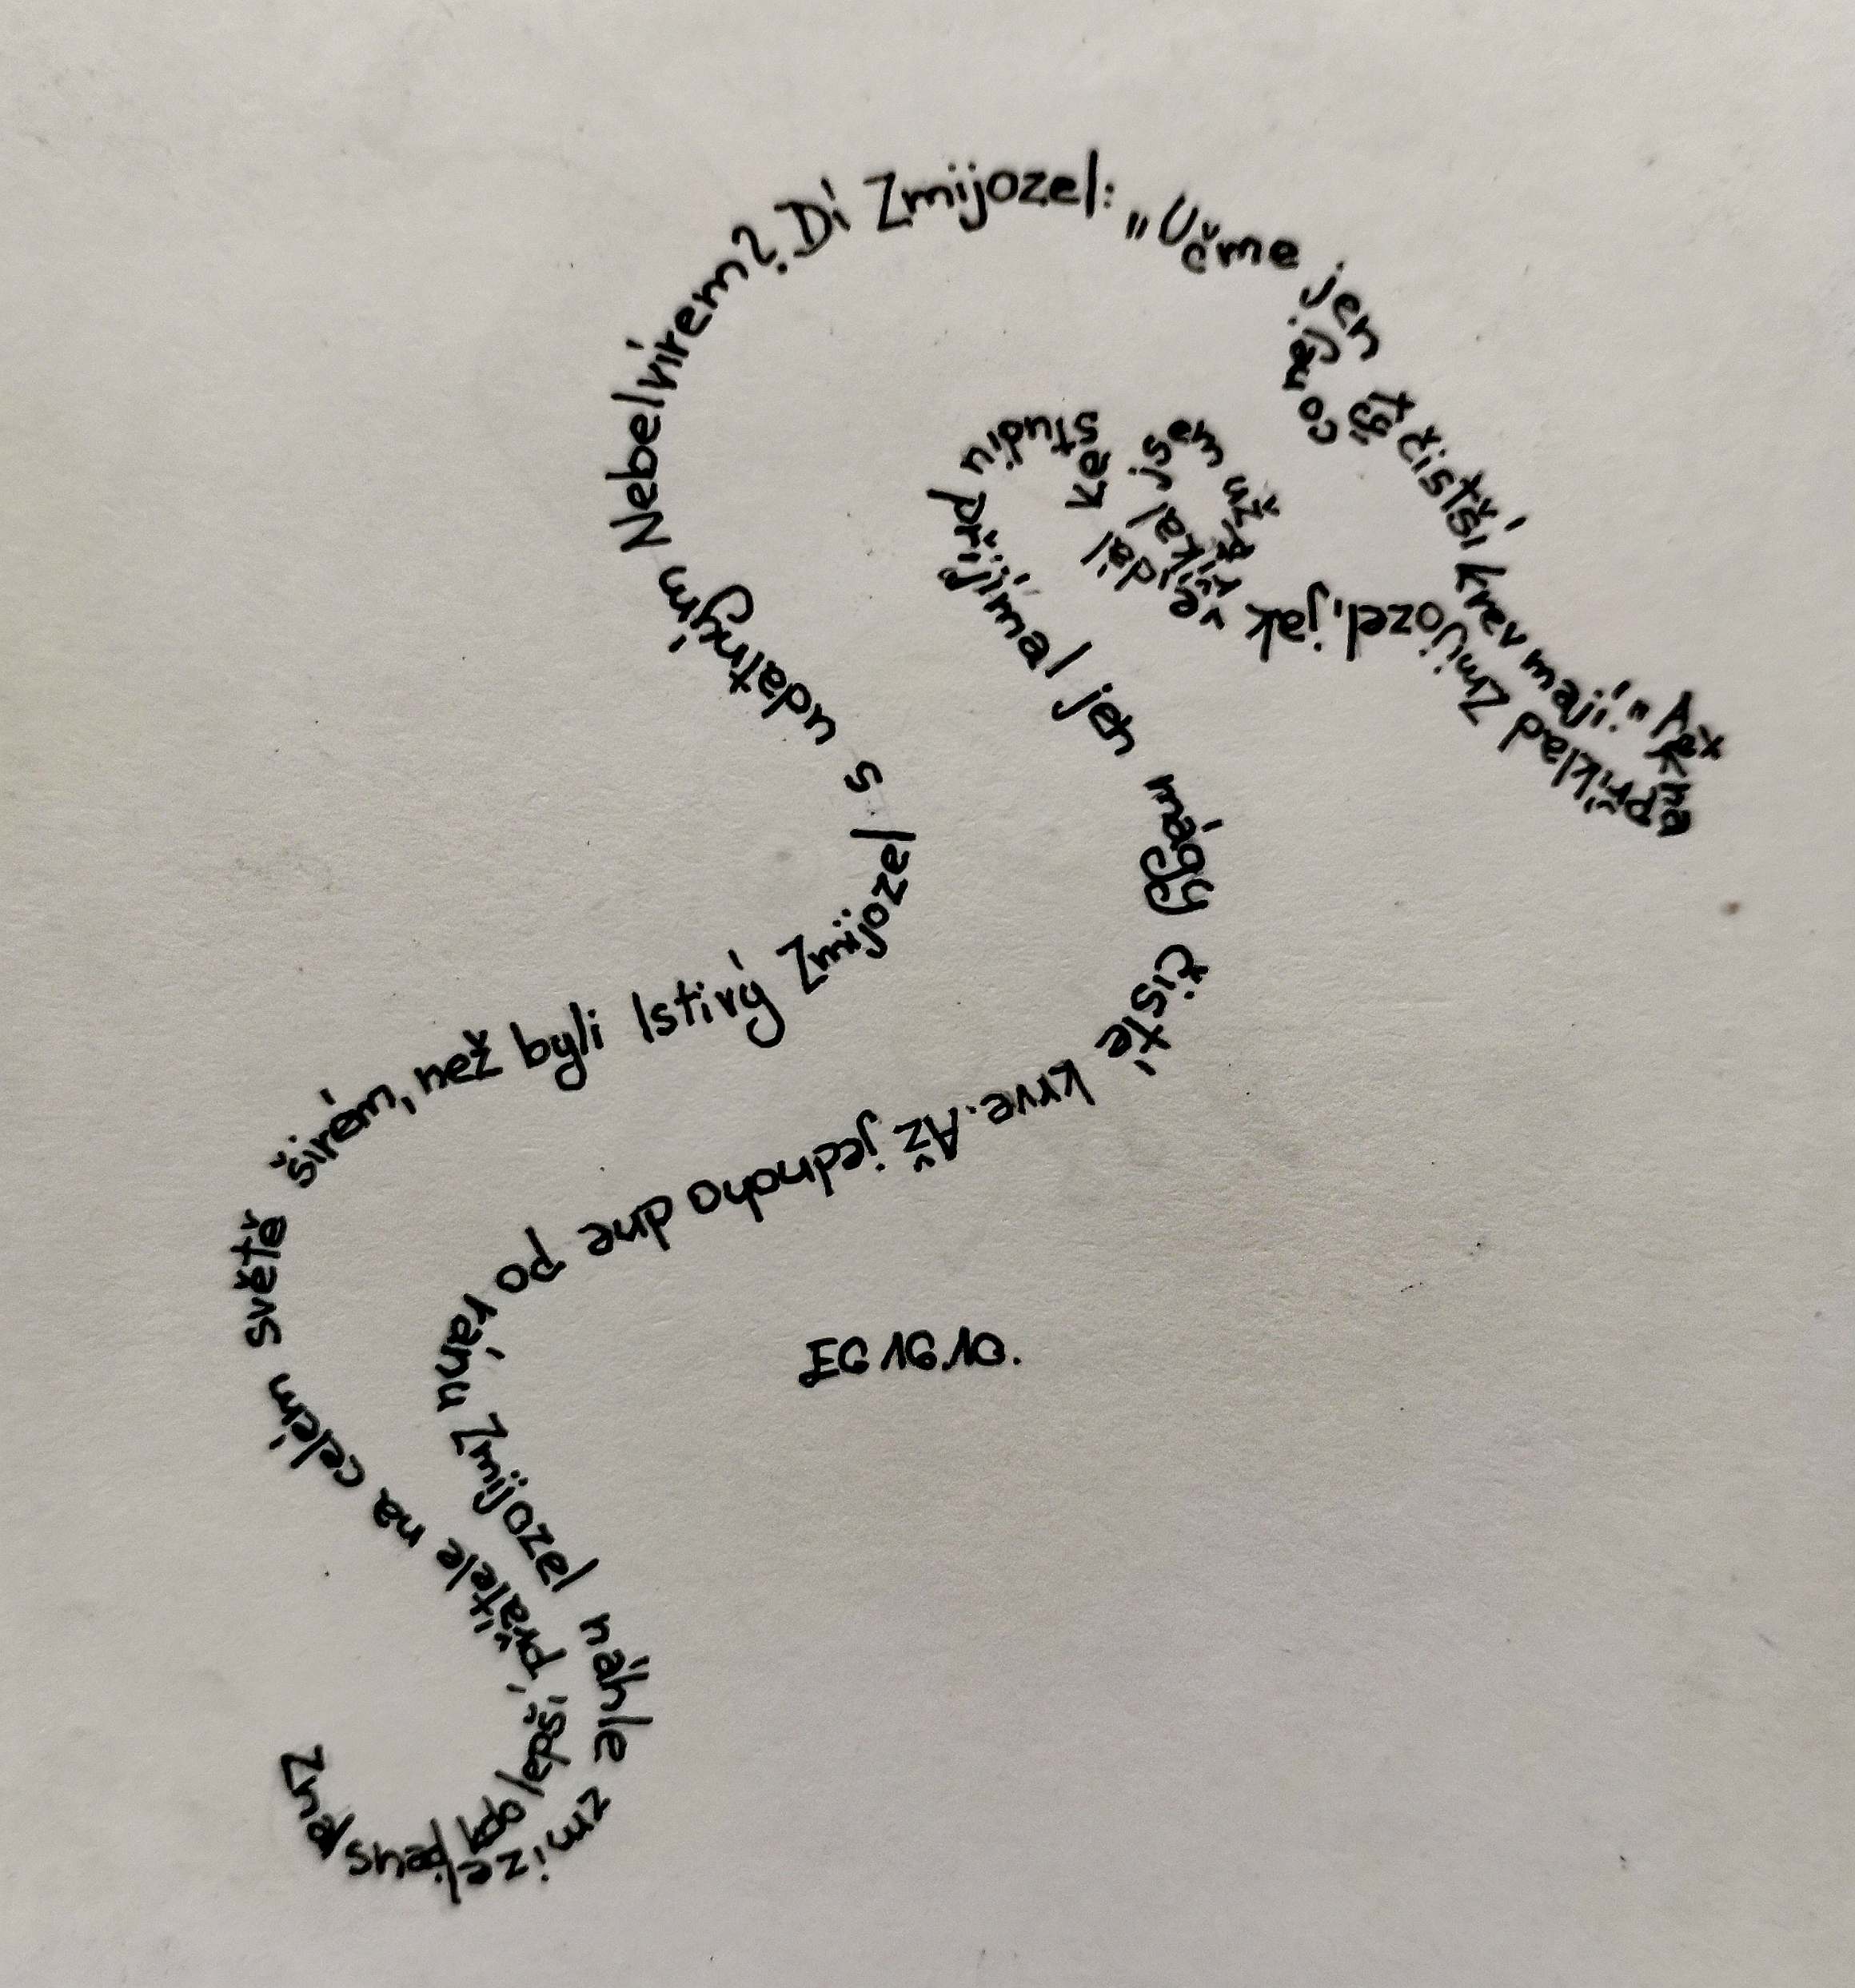 Zná snad kdo lepší přátele na celém světě širém, než byli lstivý Zmijozel s udatným Nebelvírem? Dí Zmijozel: „Učme jen ty, co nej čistší krev mají." A tak na příklad Zmijozel, jak už jsem říkal dál ke studiu přijímal jen mágy čisté krve. Až jednoho dne po ránu Zmijozel náhle zmizel
EG 16.10.